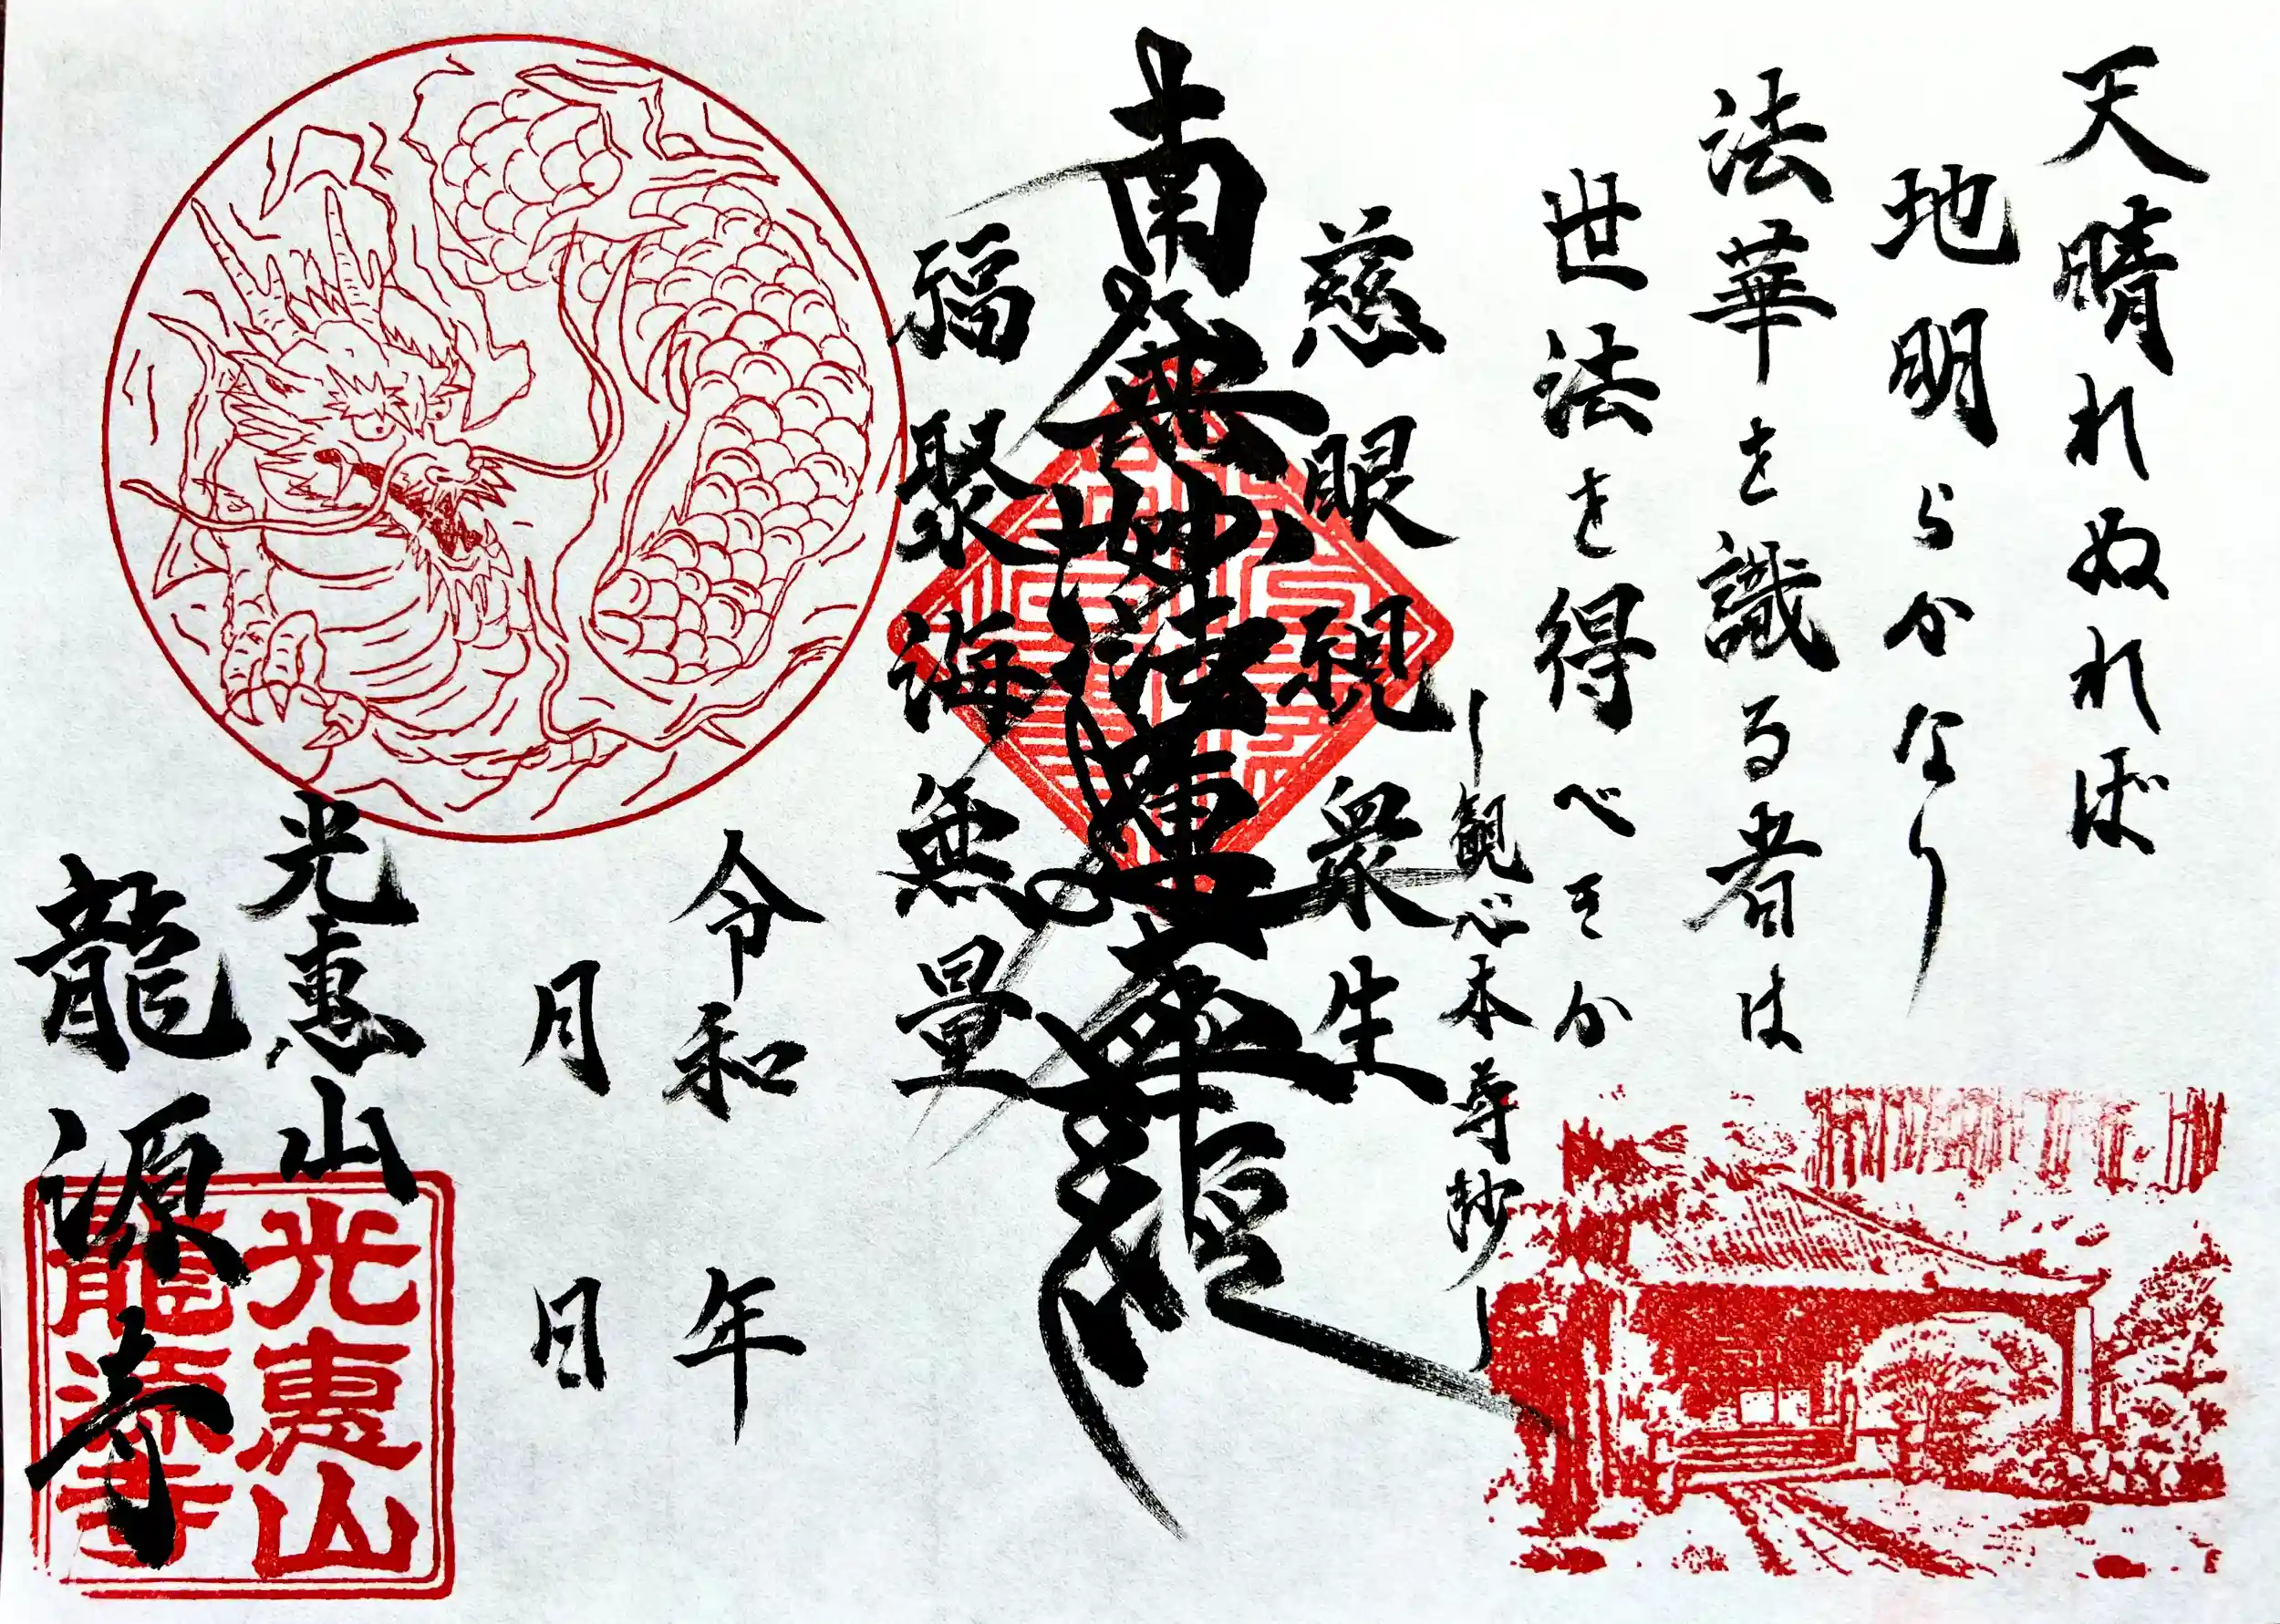 天晴れぬれば
地明らかなり
法華を識る者は
世法を得べきか
―観心本尊抄―
慈眼視衆生
南無妙法蓮華経
福聚海無量
令和 年
月 日
光惠山
龍源寺
光惠山
龍源寺